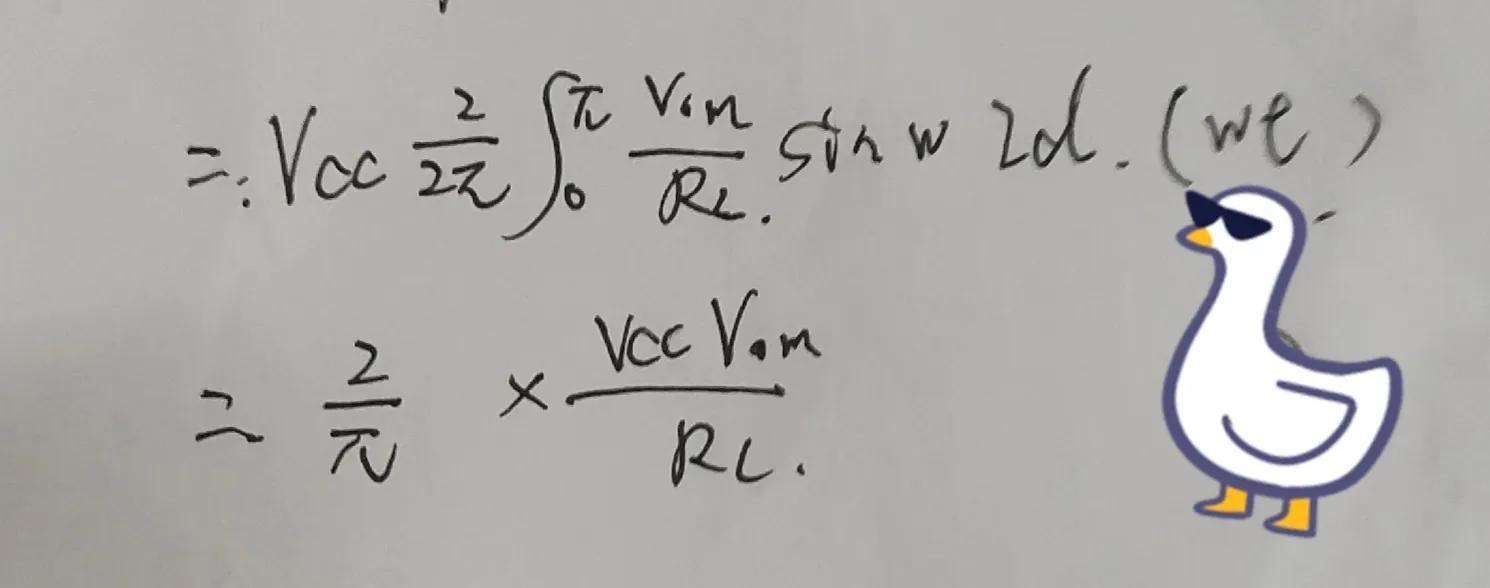 = V_{CC} \frac{2}{2\pi} \int_0^{\pi} \frac{V_{om}}{R_L} \sin w 2d.(wt)
= \frac{2}{\pi} \times \frac{V_{CC} V_{om}}{R_L}.